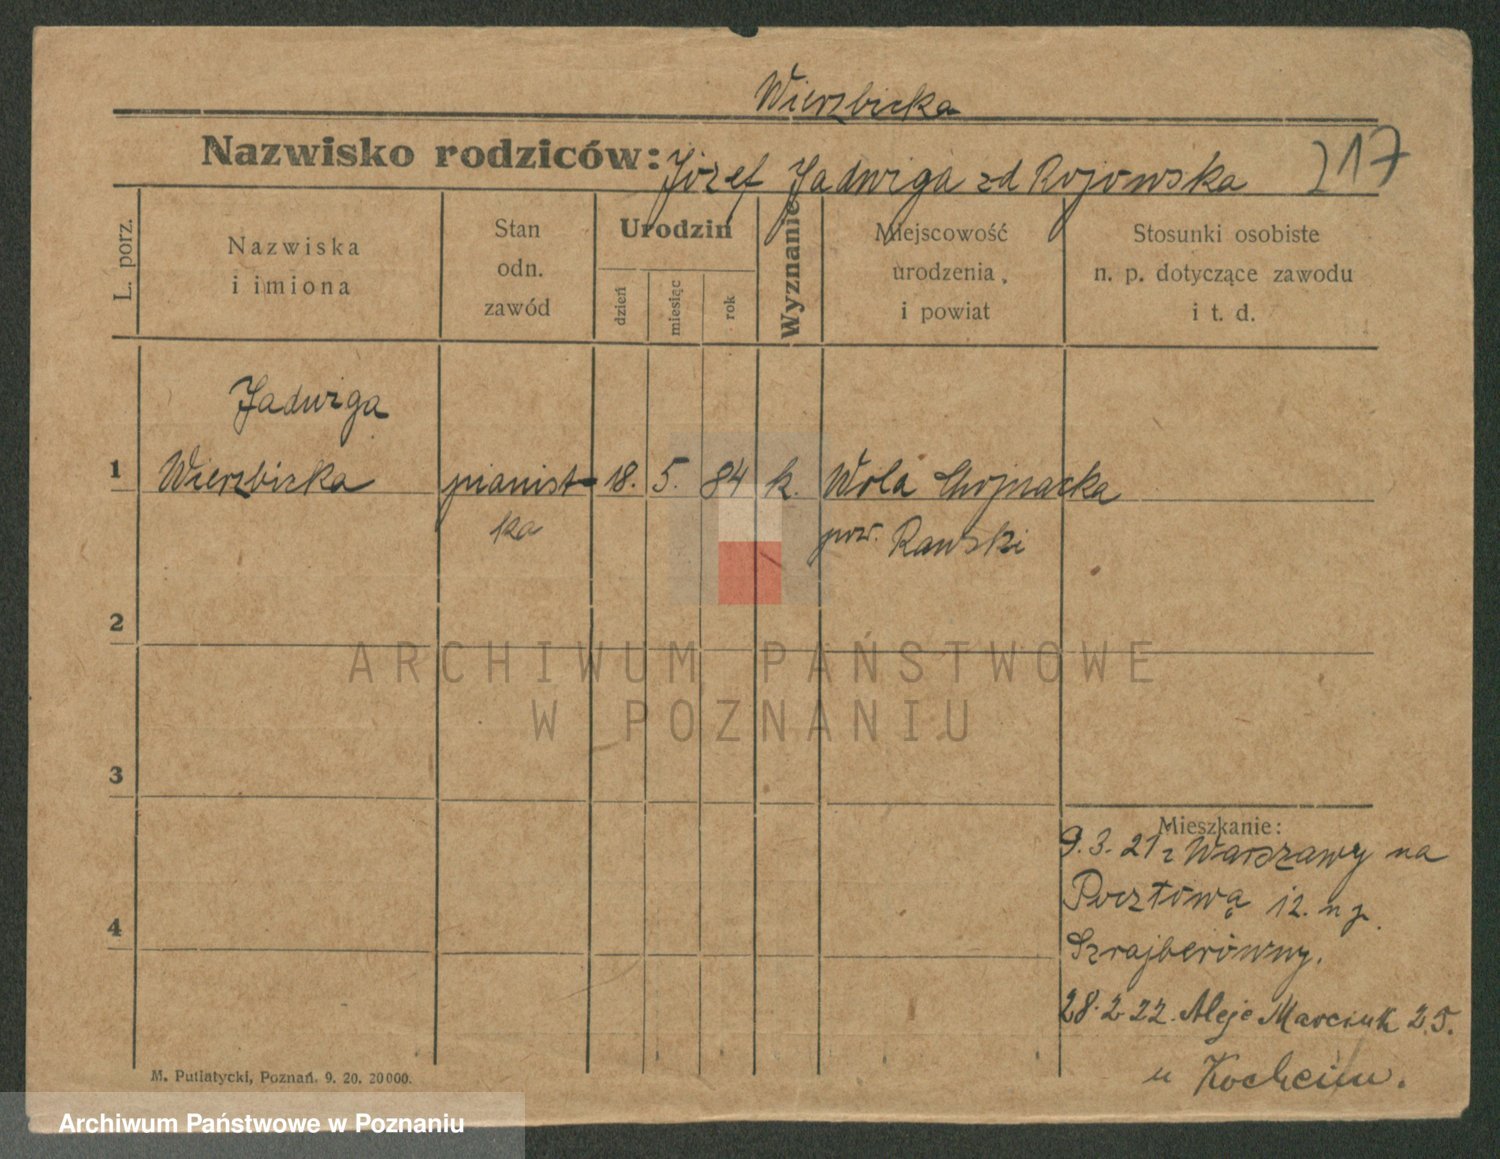 Wierzbicka
Nazwisko rodziców: Józef Jadwiga zd Rojowska 217
L. porz.
Nazwiska
i imiona
Stan
odn.
zawód
Urodzin
dzień
miesiąc
rok
Wyznanie
Miejscowość
urodzenia
i powiat
Stosunki osobiste
n. p. dotyczące zawodu
i t. d.
Jadwiga
1 Wierzbicka pianist- 18. 5. 84 k. Wola Chojnacka
ka pow. Rawski
2
ARCHIWUM PAŃSTWOWE
W POZNANIU
3
Mieszkanie:
9. 3. 21 z Warszawy na
Pocztową 12. u
4
Szrajberówny.
28. 2 22. Aleje Marcink 25.
u
M. Putiatycki, Poznań. 9. 20. 20000.
Archiwum Państwowe w Poznaniu